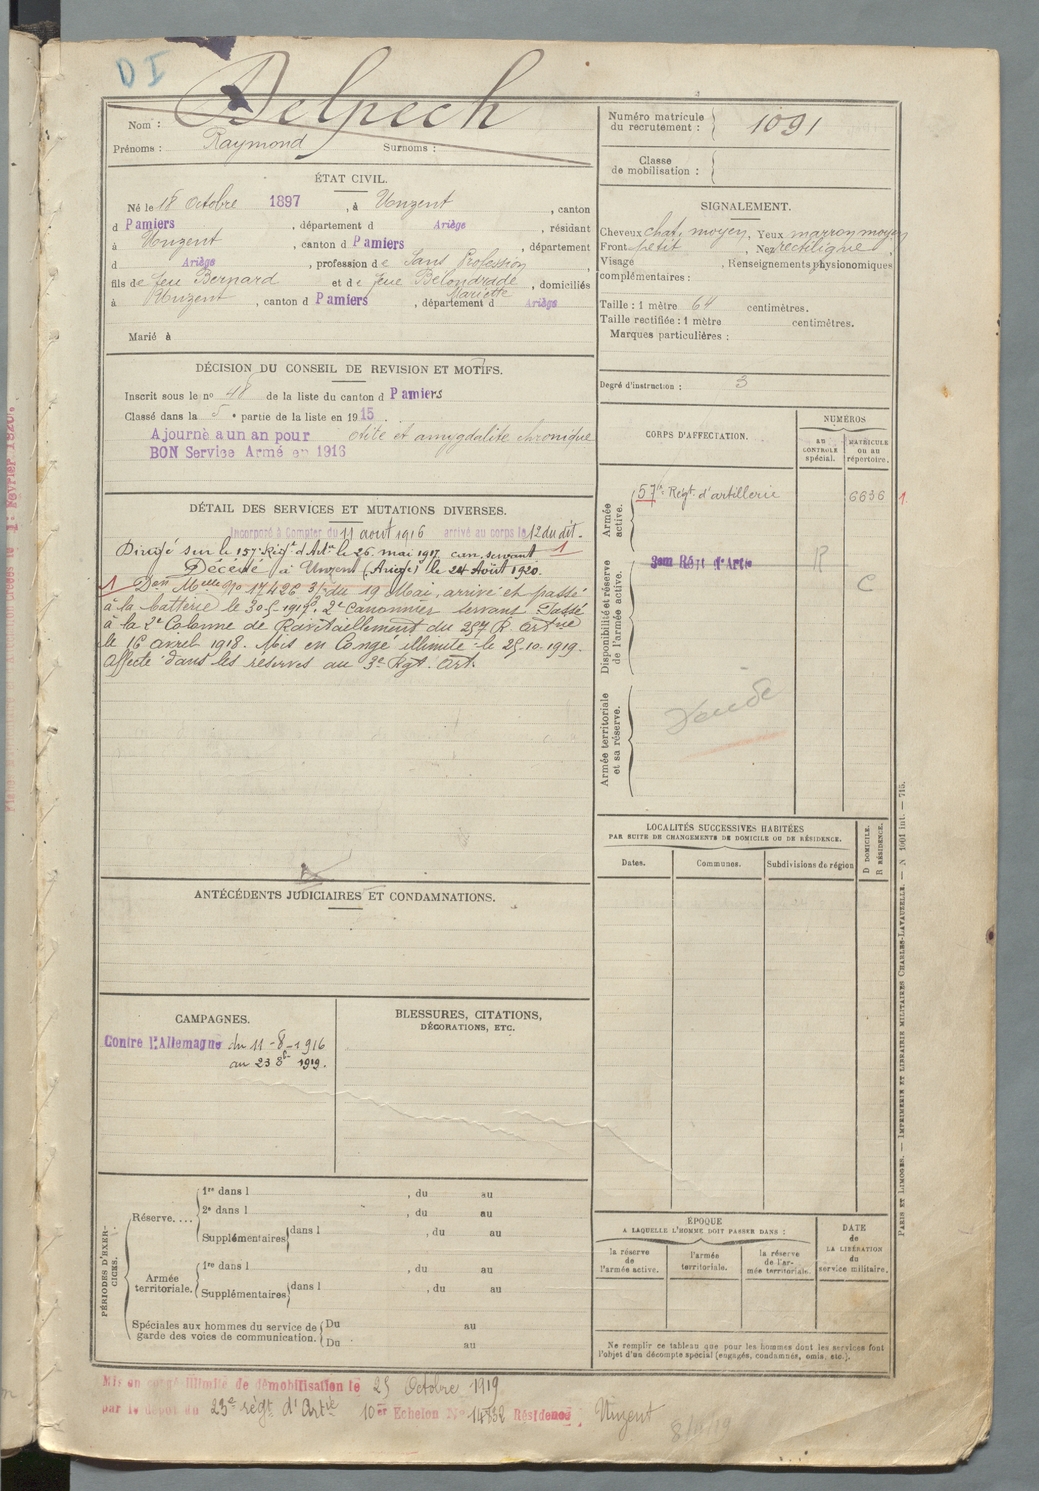 DI
Nom : Delpech
Prénoms : Raymond Surnoms :
Numéro matricule du recrutement : 1091
Classe de mobilisation :
ÉTAT CIVIL.
Né le 18 Octobre 1897, à Unzent, canton
d Pamiers, département d Ariège, résidant
à Unzent, canton d Pamiers, département
d Ariège, profession de Sans Profession
fils de feu Bernard et de feue Belondrade Mariette, domiciliés
à Unzent, canton d Pamiers, département d Ariège
Marié à
SIGNALEMENT.
Cheveux chat. moyen, Yeux marron moyen
Front petit, Nez rectiligne
Visage , Renseignements physionomiques
complémentaires :
Taille : 1 mètre 64 centimètres.
Taille rectifiée : 1 mètre centimètres.
Marques particulières :
Degré d'instruction : 3
DÉCISION DU CONSEIL DE REVISION ET MOTIFS.
Inscrit sous le n° 48 de la liste du canton d Pamiers
Classé dans la 5e partie de la liste en 1915.
Ajourné a un an pour otite et amygdalite chronique
BON Service Armé en 1916
DÉTAIL DES SERVICES ET MUTATIONS DIVERSES.
Incorporé à Compter du 11 août 1916 arrivé au corps le 12 du dit.
Dirigé sur le 157e Régt d'Artie le 26 mai 1917 can. servant 1
Décédé à Unzent (Ariège) le 24 Août 1920.
1 Don Melle No 17426 3/5 du 19 Mai, arrivé et passé
à la batterie le 30-5-1917, 2e Canonnier servant Passé
à la 2e Colonne de Ravitaillement du 257 R. Art
le 16 avril 1918. Mis en Congé illimité le 25-10-1919.
Affecté dans les réserves au 3e Rgt. Art.
CORPS D'AFFECTATION.
NUMÉROS
AU CONTROLE spécial.
MATRICULE OU AU répertoire.
Armée active.
57e Régt d'artillerie 6636 1.
Disponibilité et réserve de l'armée active.
3em Régt d'Artie R C
Armée territoriale et sa réserve.
LOCALITÉS SUCCESSIVES HABITÉES
PAR SUITE DE CHANGEMENTS DE DOMICILE OU DE RÉSIDENCE.
Dates. Communes. Subdivisions de région
D DOMICILE.
R RÉSIDENCE.
ANTÉCÉDENTS JUDICIAIRES ET CONDAMNATIONS.
CAMPAGNES.
Contre l'Allemagne du 11-8-1916
au 23 8bre 1919.
BLESSURES, CITATIONS,
DÉCORATIONS, ETC.
PÉRIODES D'EXERCICES.
Réserve....
1re dans l , du au
2e dans l , du au
Supplémentaires dans l , du au
Armée territoriale.
1re dans l , du au
Supplémentaires dans l , du au
Spéciales aux hommes du service de garde des voies de communication.
Du au
Du au
ÉPOQUE
A LAQUELLE L'HOMME DOIT PASSER DANS :
la réserve de l'armée active.
l'armée territoriale.
la réserve de l'armée territoriale.
DATE de LA LIBÉRATION du service militaire.
Ne remplir ce tableau que pour les hommes dont les services font
l'objet d'un décompte spécial (engagés, condamnés, omis, etc.).
PARIS ET LIMOGES. — IMPRIMERIE ET LIBRAIRIE MILITAIRES CHARLES-LAVAUZELLE. — N 1001 int. — 715.
Mis en congé illimité de démobilisation le 25 Octobre 1919
par le dépôt du 23e régt d'Artie 10er Echelon No 14732 Résidence, Unzent